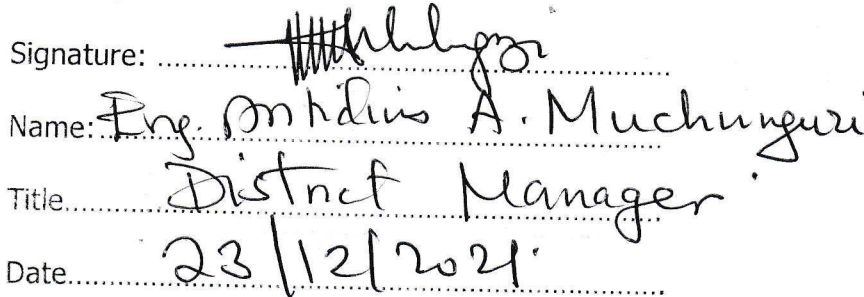 Signature:
Name: Eng. Antidius A. Muchunguzi
Title District Manager
Date 23/12/2021